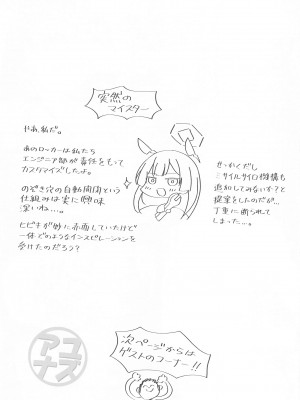 突然の
マイスター
やあ、私だ。
あのロッカーは私たち
エンジニア部が責任をもって
カスタマイズしたよ。
のぞき穴の自動開閉という
仕組みは実に興味
深いね…。
ヒビキが妙に赤面していたけど
一体どのようなインスピレーションを
受けたのだろう?
せっかくだし
ミサイルサイロ機構も
追加してみないか?と
提案をしたのだが…
丁重に断られて
しまった…。
次ページからは
ゲストのコーナー!!